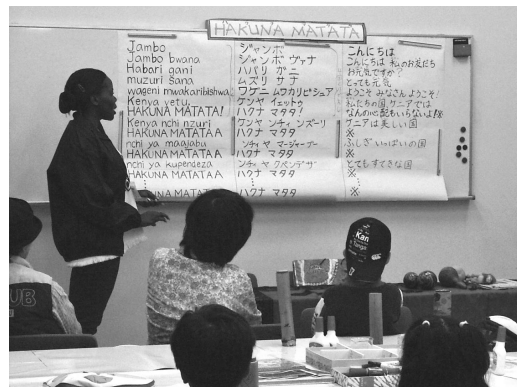 HAKUNA MATATA
Jambo
Jambo bwana
Habari gani
muzuri sana
wageni mwakaribishwa
Kenya yetu,
HAKUNA MATATA!
Kenya nchi nzuri
HAKUNA MATATAA
nchi ya maajabu
HAKUNA MATATAA
nchi ya kupendeza
HAKUNA MATATAA
HAKUNA MATATAA
ジャンボ
ジャンボ ヴァナ
ハバリ ガニ
ムズリ サナ
ワゲニ ムワカリビシュア!
ケンヤ イェットゥ
ハクナ マタタ!
ケンヤ ンチィ ンズーリ
ハクナ マタタ
ンチィ ヤ マージャーブー
ハクナ マタタ
ンチィ ヤ クペンデザ
ハクナ マタタ
ハクナ マタタ
こんにちは
こんにちは 私のお友だち
お元気ですか?
とっても元気
ようこそ みなさん ようこそ!
私たちの国 ケニアでは
なんの心配もいらないよ!※
ケニアは美しい国
※
ふしぎいっぱいの国
※
とてもすてきな国
※
※
Kan
UB